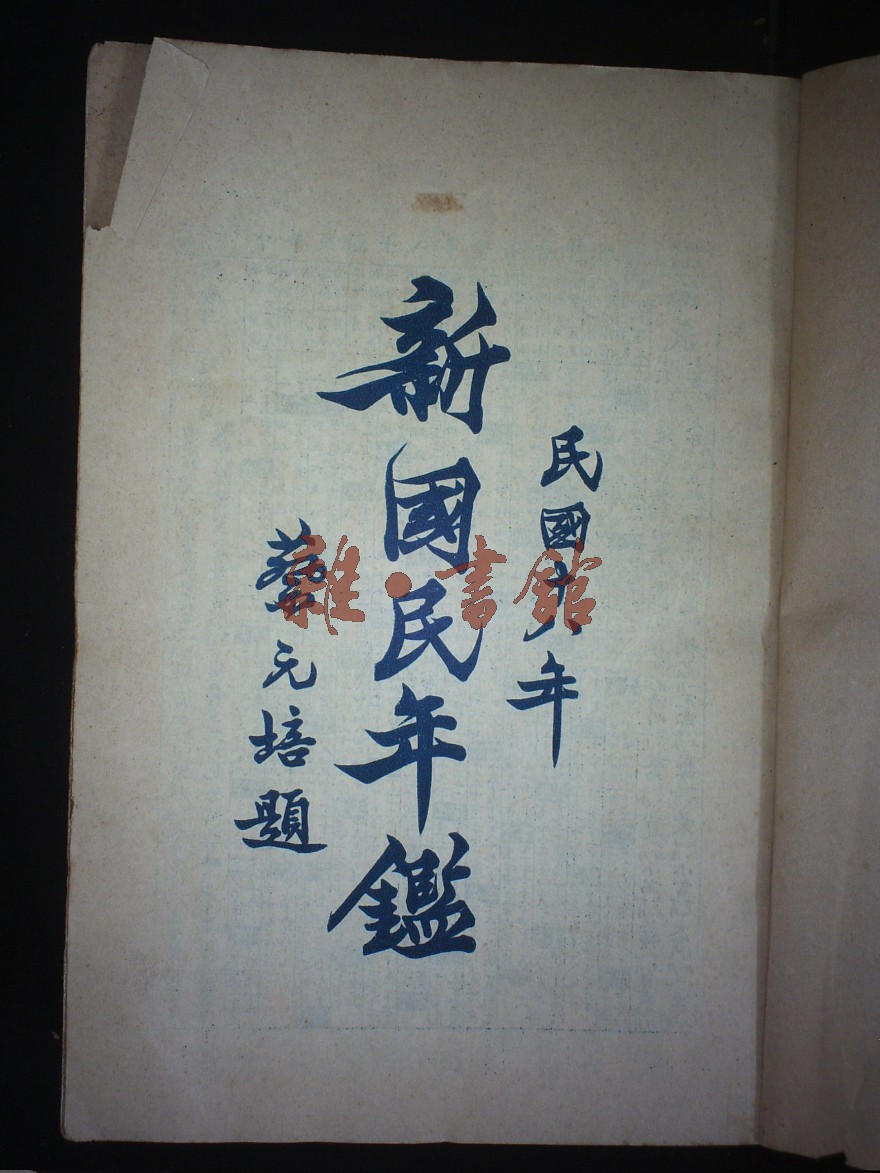 民國十八年
新國民年鑑
蔡元培題
雜·書館